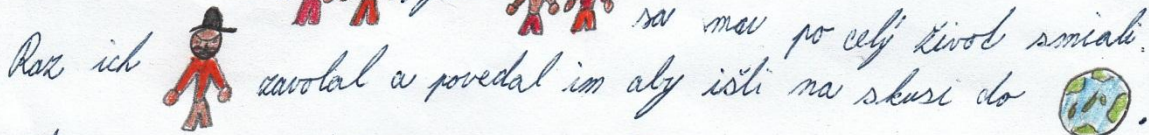 sa mu po celý život smiali.
Raz ich zavolal a povedal im aby išli na skusi do .